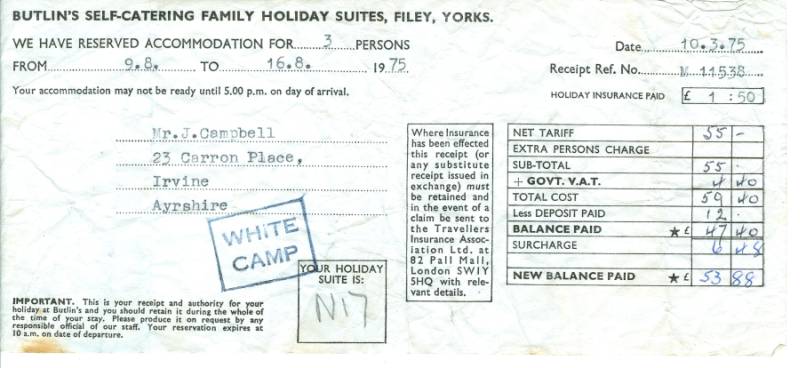 BUTLIN'S SELF-CATERING FAMILY HOLIDAY SUITES, FILEY, YORKS.
WE HAVE RESERVED ACCOMMODATION FOR.....3.....PERSONS
FROM 9.8. TO 16.8. 1975
Your accommodation may not be ready until 5.00 p.m. on day of arrival.
Date 10.3.75
Receipt Ref. No. M 11538
HOLIDAY INSURANCE PAID £ 1 : 50
Mr.J.Campbell
23 Carron Place,
Irvine
Ayrshire
WHITE
CAMP
YOUR HOLIDAY
SUITE IS:
N17
IMPORTANT. This is your receipt and authority for your
holiday at Butlin's and you should retain it during the whole of
the time of your stay. Please produce it on request by any
responsible official of our staff. Your reservation expires at
10 a.m. on date of departure.
Where Insurance
has been effected
this receipt (or
any substitute
receipt issued in
exchange) must
be retained and
in the event of a
claim be sent to
the Travellers
Insurance Assoc-
iation Ltd. at
82 Pall Mall,
London SW1Y
5HQ with rele-
vant details.
NET TARIFF 55 -
EXTRA PERSONS CHARGE
SUB-TOTAL 55 -
+ GOVT. V.A.T. 4 40
TOTAL COST 59 40
Less DEPOSIT PAID 12 -
BALANCE PAID ★ £ 47 40
SURCHARGE 6 48
NEW BALANCE PAID ★ £ 53 88